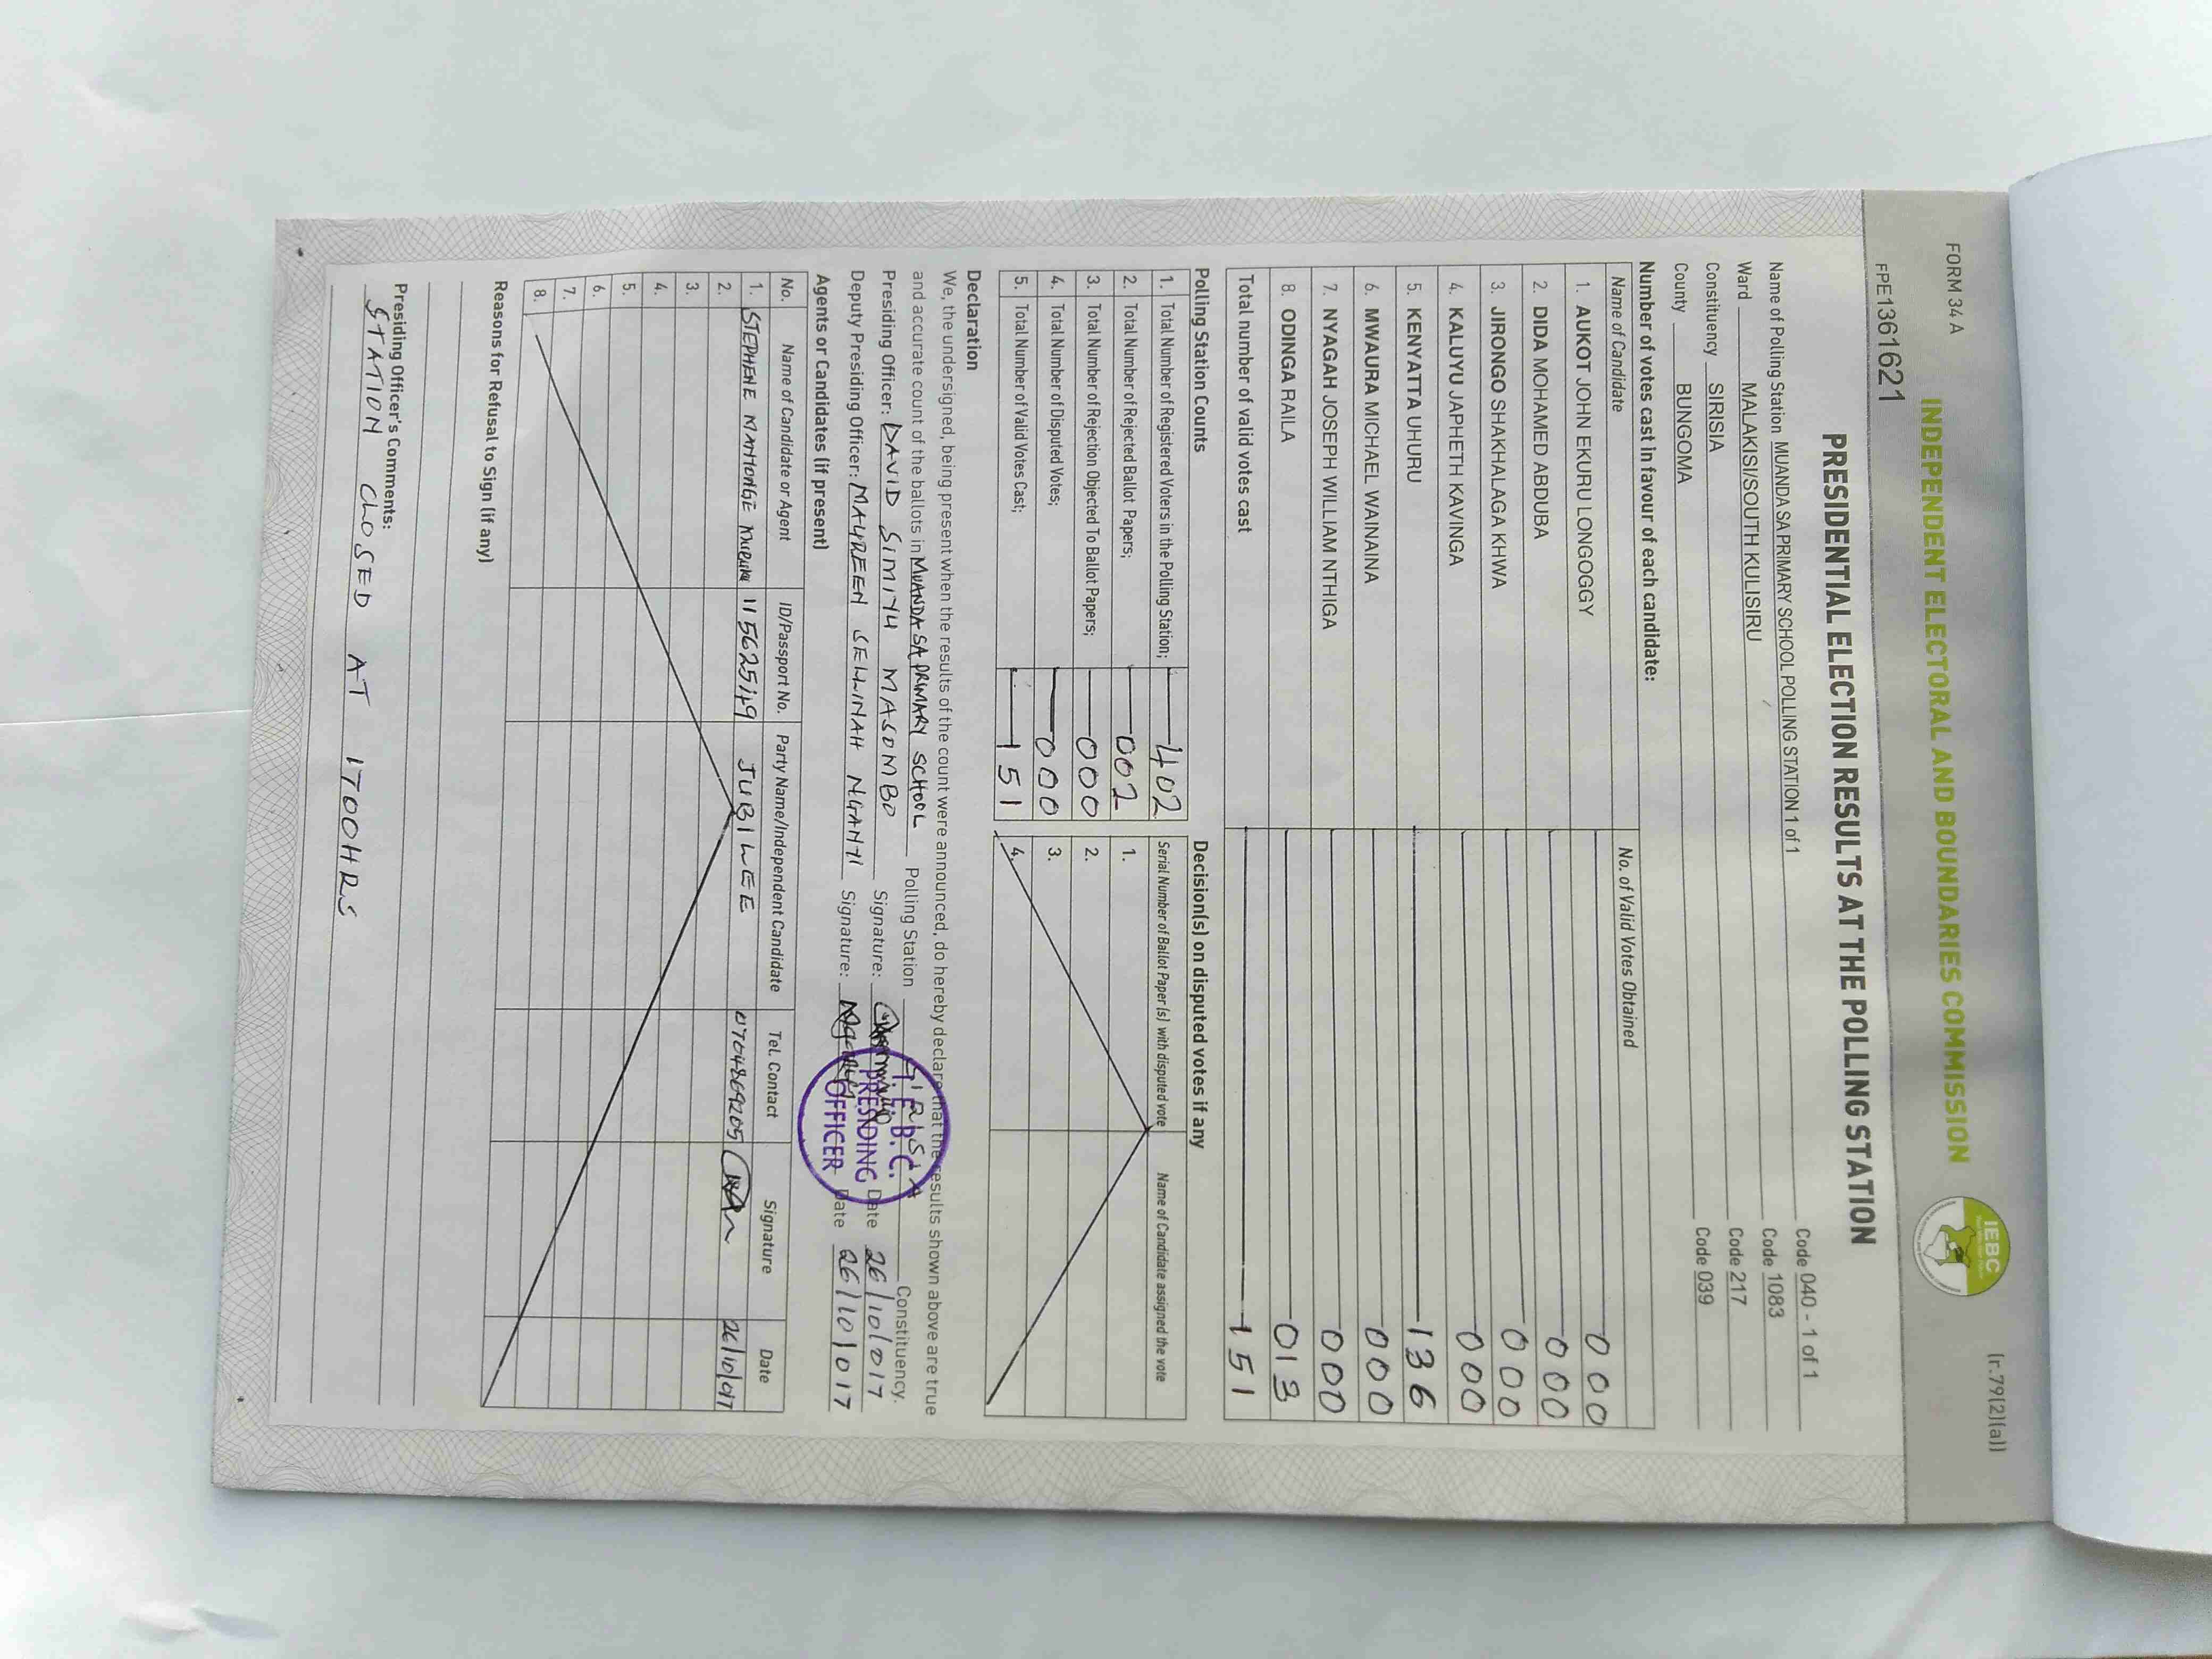 FORM 34 A
(r.79(2)(a))
INDEPENDENT ELECTORAL AND BOUNDARIES COMMISSION
IEBC
FPE1361621
PRESIDENTIAL ELECTION RESULTS AT THE POLLING STATION
Name of Polling Station MUANDA SA PRIMARY SCHOOL POLLING STATION 1 of 1 Code 040 - 1 of 1
Ward MALAKISI/SOUTH KULISIRU Code 1083
Constituency SIRISIA Code 217
County BUNGOMA Code 039
Number of votes cast in favour of each candidate:
Name of Candidate No. of Valid Votes Obtained
1. AUKOT JOHN EKURU LONGOGGY 000
2. DIDA MOHAMED ABDUBA 000
3. JIRONGO SHAKHALAGA KHWA 000
4. KALUYU JAPHETH KAVINGA 000
5. KENYATTA UHURU 136
6. MWAURA MICHAEL WAINAINA 000
7. NYAGAH JOSEPH WILLIAM NTHIGA 000
8. ODINGA RAILA 013
Total number of valid votes cast 151
Polling Station Counts
1. Total Number of Registered Voters in the Polling Station; 402
2. Total Number of Rejected Ballot Papers; 002
3 Total Number of Rejection Objected To Ballot Papers; 000
4. Total Number of Disputed Votes; 000
5. Total Number of Valid Votes Cast; 151
Decision(s) on disputed votes if any
Serial Number of Ballot Paper (s) with disputed vote Name of Candidate assigned the vote
1.
2.
3.
4.
Declaration
We, the undersigned, being present when the results of the count were announced, do hereby declare that the results shown above are true
and accurate count of the ballots in MUANDA SA PRIMARY SCHOOL Polling Station Constituency.
Presiding Officer: DAVID SIMIYU MASOMBO Signature: Date 26/10/017
Deputy Presiding Officer: MAUREEN SELLINAH Signature: Date 26/10/017
I.E.B.C.
PRESIDING
OFFICER
Agents or Candidates (if present)
No. Name of Candidate or Agent ID/Passport No. Party Name/Independent Candidate Tel. Contact Signature Date
1. STEPHENE 11562549 JUBILEE 0704869205 26/10/017
2.
3.
4.
5.
6.
7.
8.
Reasons for Refusal to Sign (if any)
Presiding Officer's Comments:
STATION CLOSED AT 1700HRS